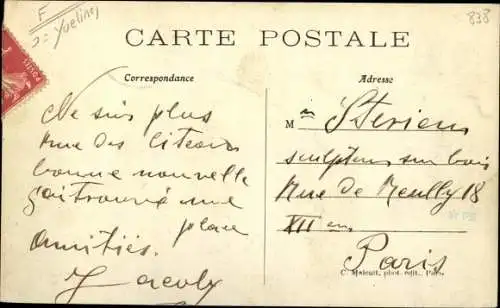 F
=> Yvelines
838
CARTE POSTALE
Correspondance
Adresse
Ne suis plus
Rue des
bonne nouvelle
j'ai trouvé une
place
Amitiés.
M
sculpteur sur bois
Rue de Reuilly 18
XII em
Paris
phot. édit., Paris